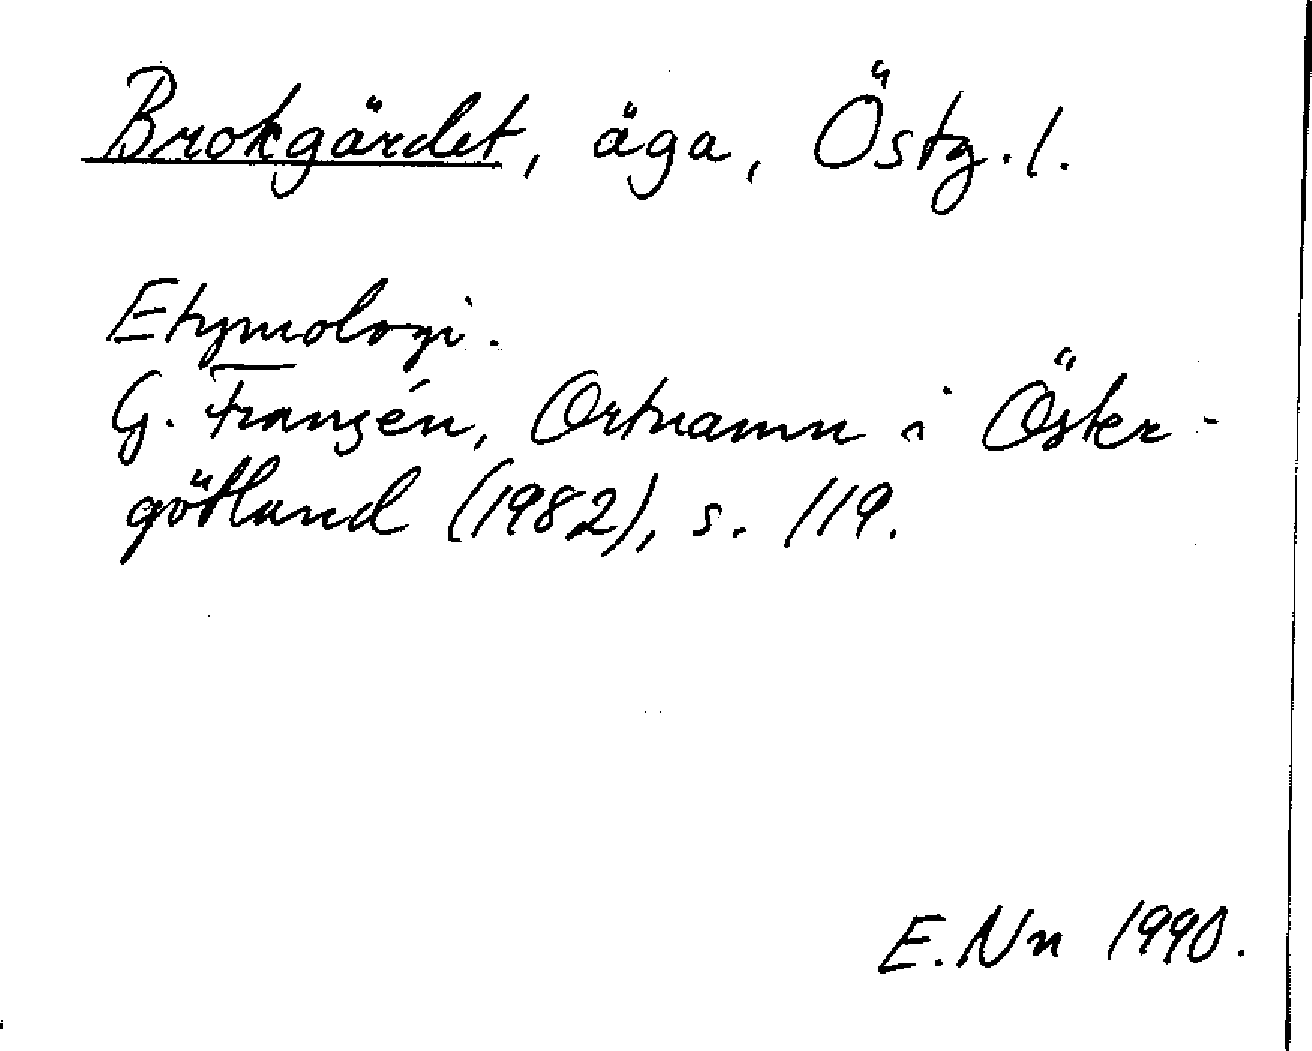 Brokgärdet, äga, Östg. l.
Etymologi.
G. Franzén, Ortnamn i Öster-
götland (1982), s. 119.
E. Nn 1990.